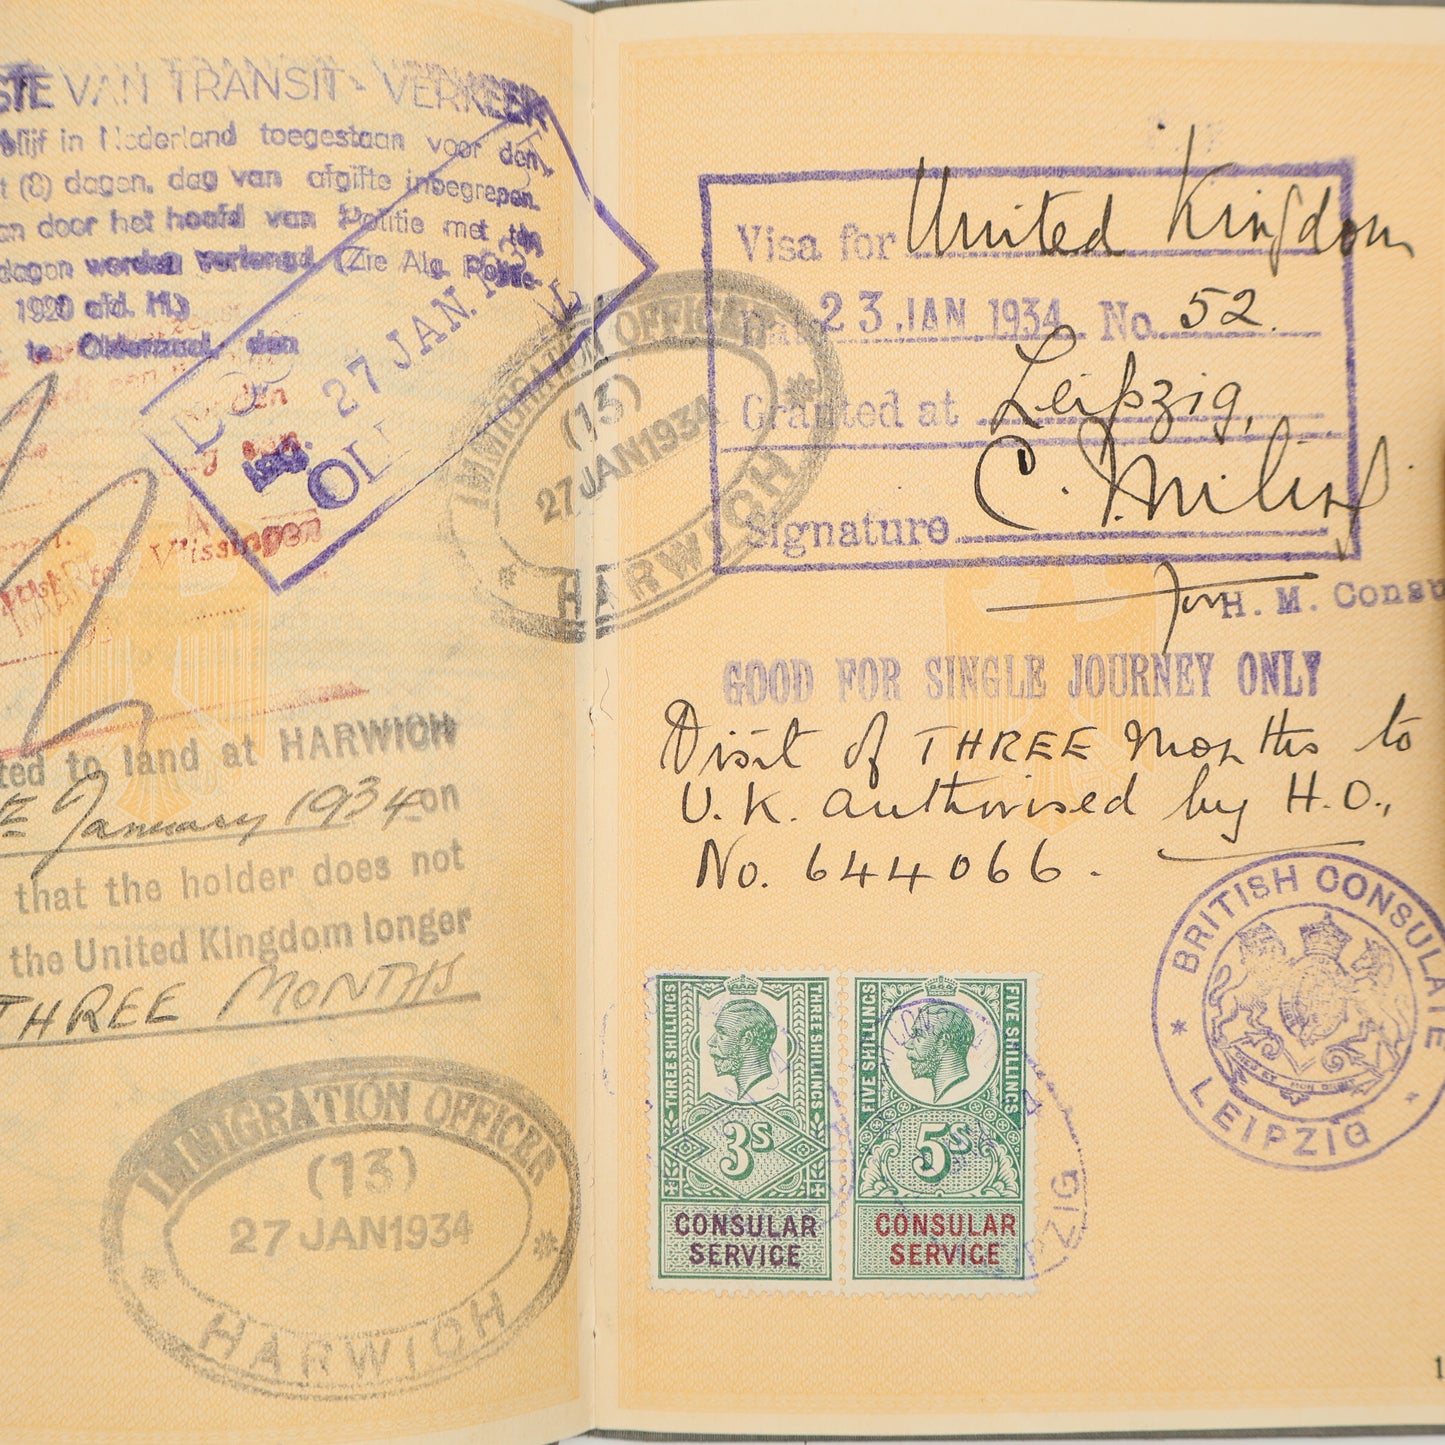 VAN TRANSIT-VERKEER
in Nederland toegestaan voor den
(8) dagen. dag van afgifte inbegrepen.
door het hoofd van Politie met ten
dagen worden verlengd (Zie Alg.
1920 afd. H.)
te Oldenzaal, den
27 JAN. 193
OL
Vlissingen
IMMIGRATION OFFICER
(13)
27 JAN 1934
HARWICH
to land at HARWICH
January 1934 on
that the holder does not
the United Kingdom longer
THREE MONTHS
IMMIGRATION OFFICER
(13)
27 JAN 1934
HARWICH
Visa for United Kingdom
Date 23 JAN 1934 No. 52.
Granted at Leipzig,
Signature
for H. M. Consu
GOOD FOR SINGLE JOURNEY ONLY
Visit of THREE Months to
U.K. authorised by H.O.,
No. 644066.
BRITISH CONSULATE
LEIPZIG
THREE SHILLINGS
THREE SHILLINGS
3S
CONSULAR
SERVICE
FIVE SHILLINGS
FIVE SHILLINGS
5S
CONSULAR
SERVICE
PZIG
1